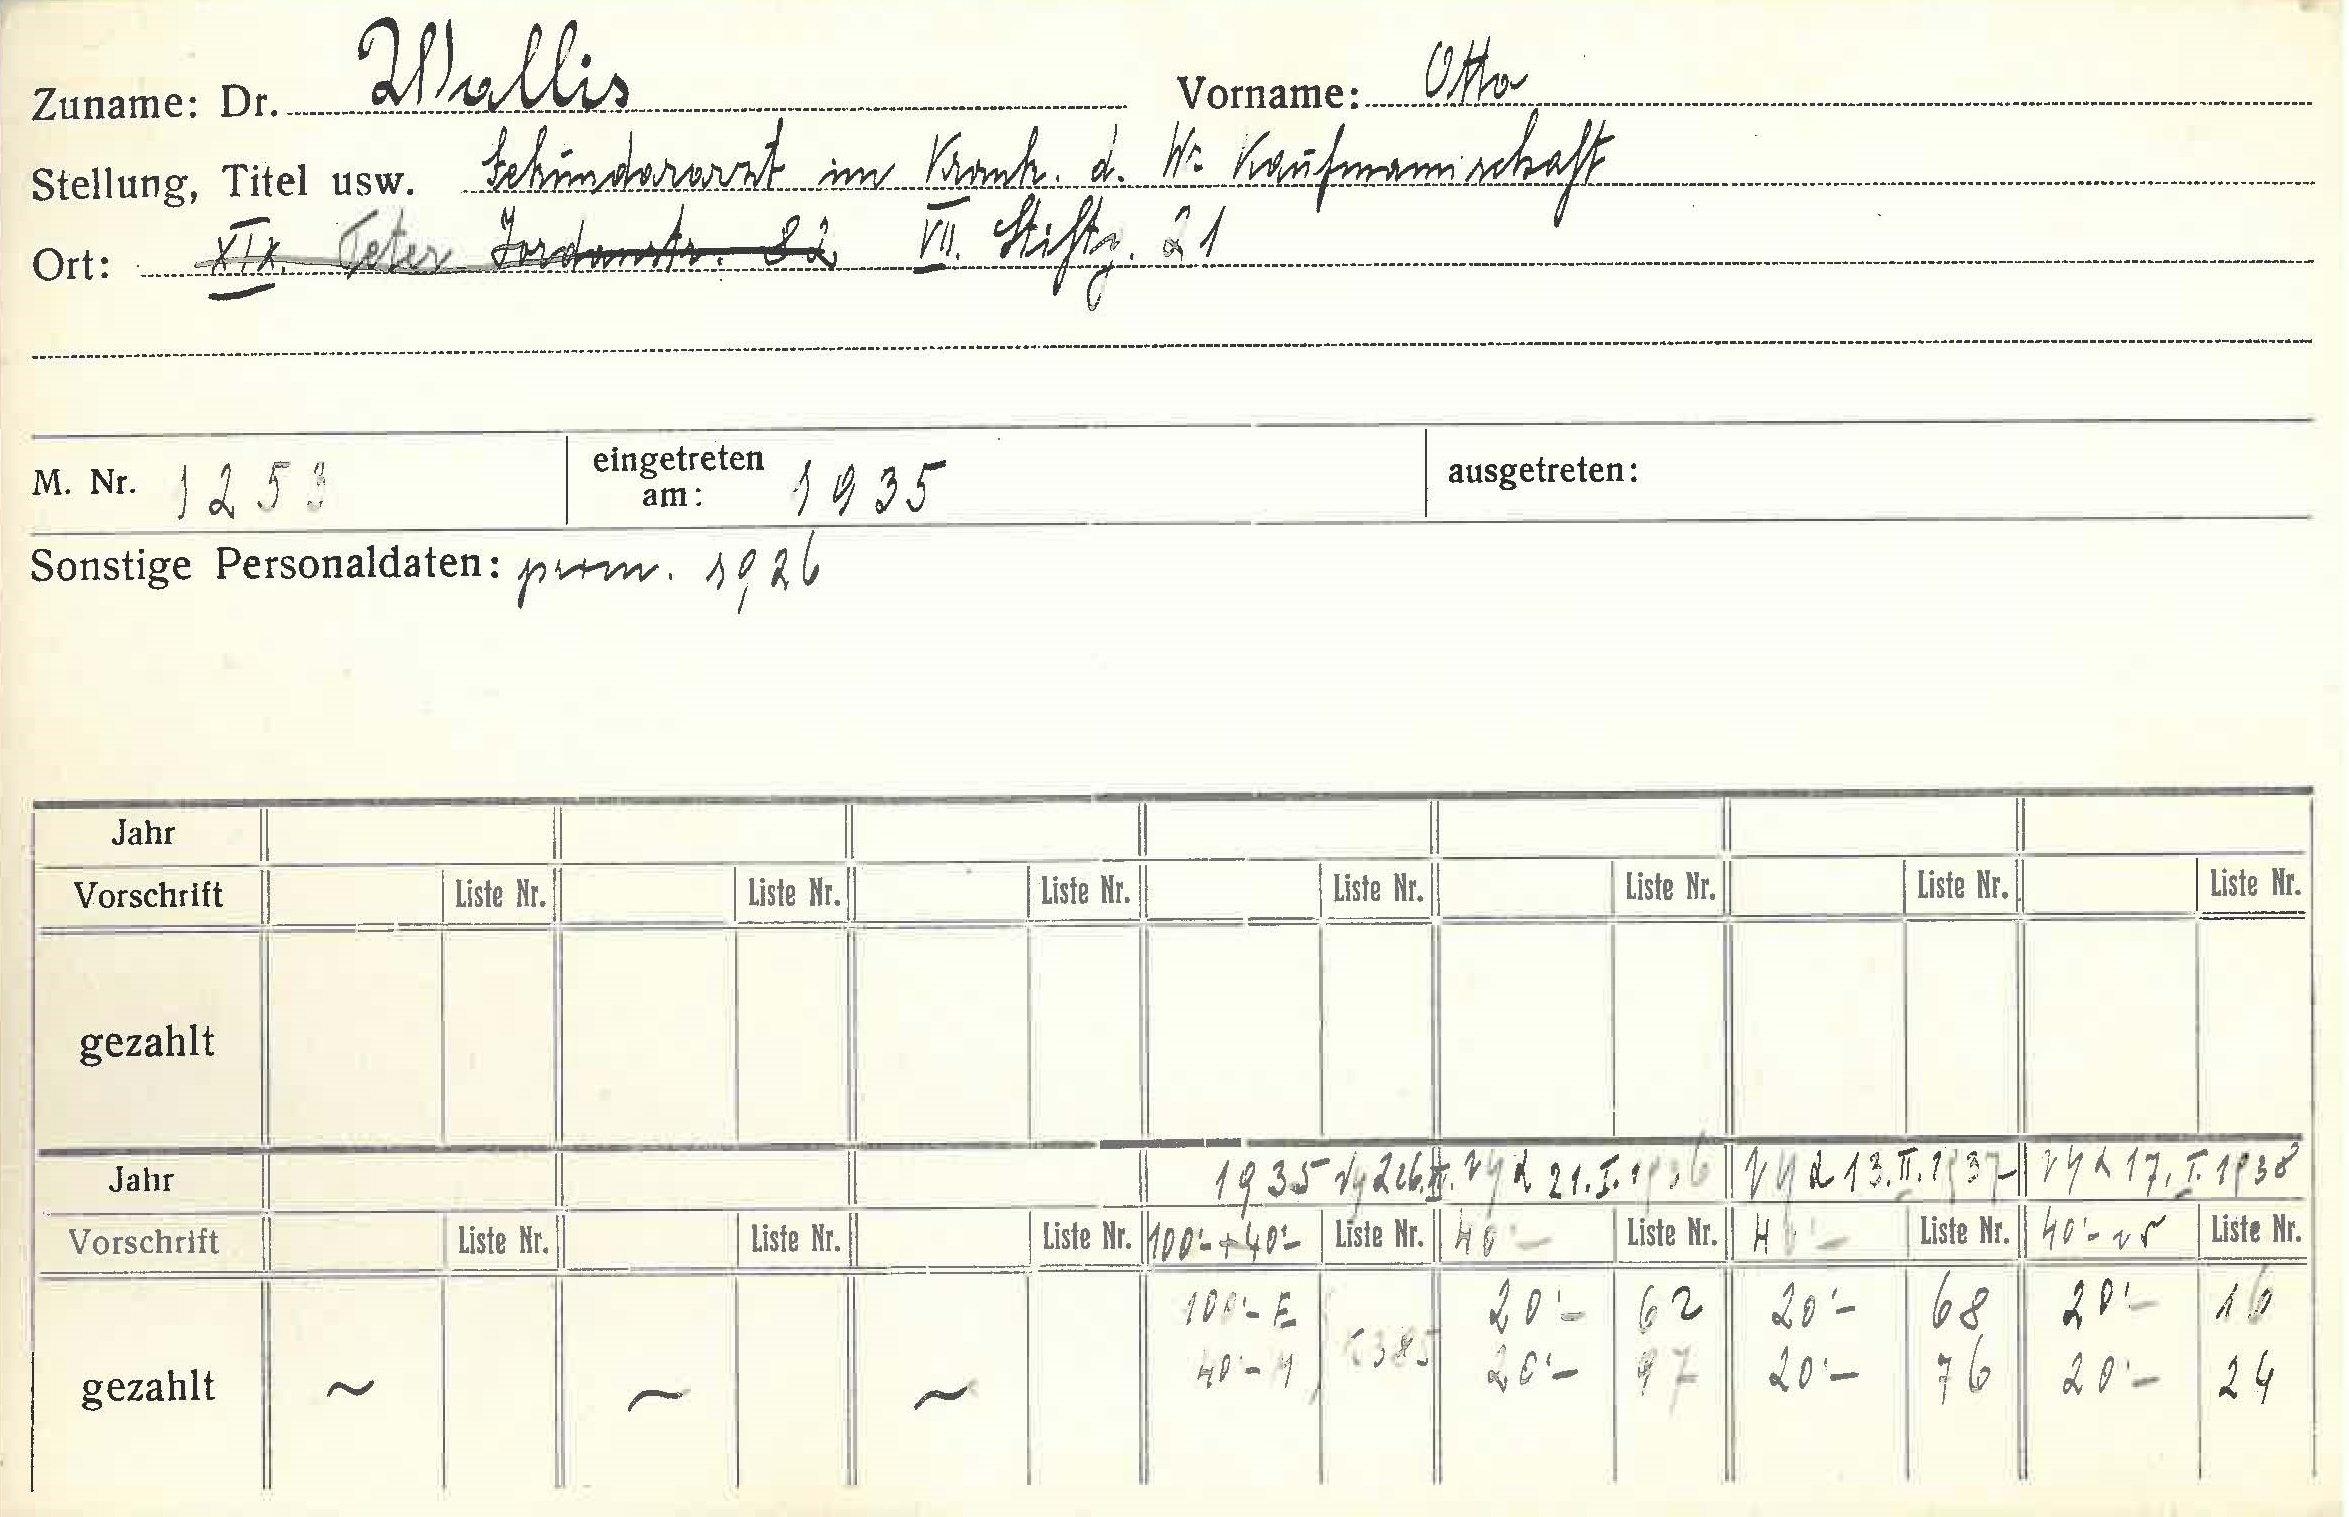 Zuname: Dr. Wallis Vorname: Otto
Stellung, Titel usw. Sekundararzt im Krank. d. Wr. Kaufmannschaft
Ort: XIX. Peter Jordanstr. 82 VII. Stiftg. 21
M. Nr. 1253 eingetreten am: 1935 ausgetreten:
Sonstige Personaldaten: prom. 1926
Jahr
Vorschrift Liste Nr. Liste Nr. Liste Nr. Liste Nr. Liste Nr. Liste Nr. Liste Nr.
gezahlt
Jahr 1935 21.I.1936 13.II.1937 17.I.1938
Vorschrift Liste Nr. Liste Nr. Liste Nr. 100'-+40'- Liste Nr. 40'- Liste Nr. Liste Nr. 40'- Liste Nr.
100'- E 20'- 62 20'- 68 20'- 16
gezahlt ~ ~ ~ 40'- 20'- 97 20'- 76 20'- 24